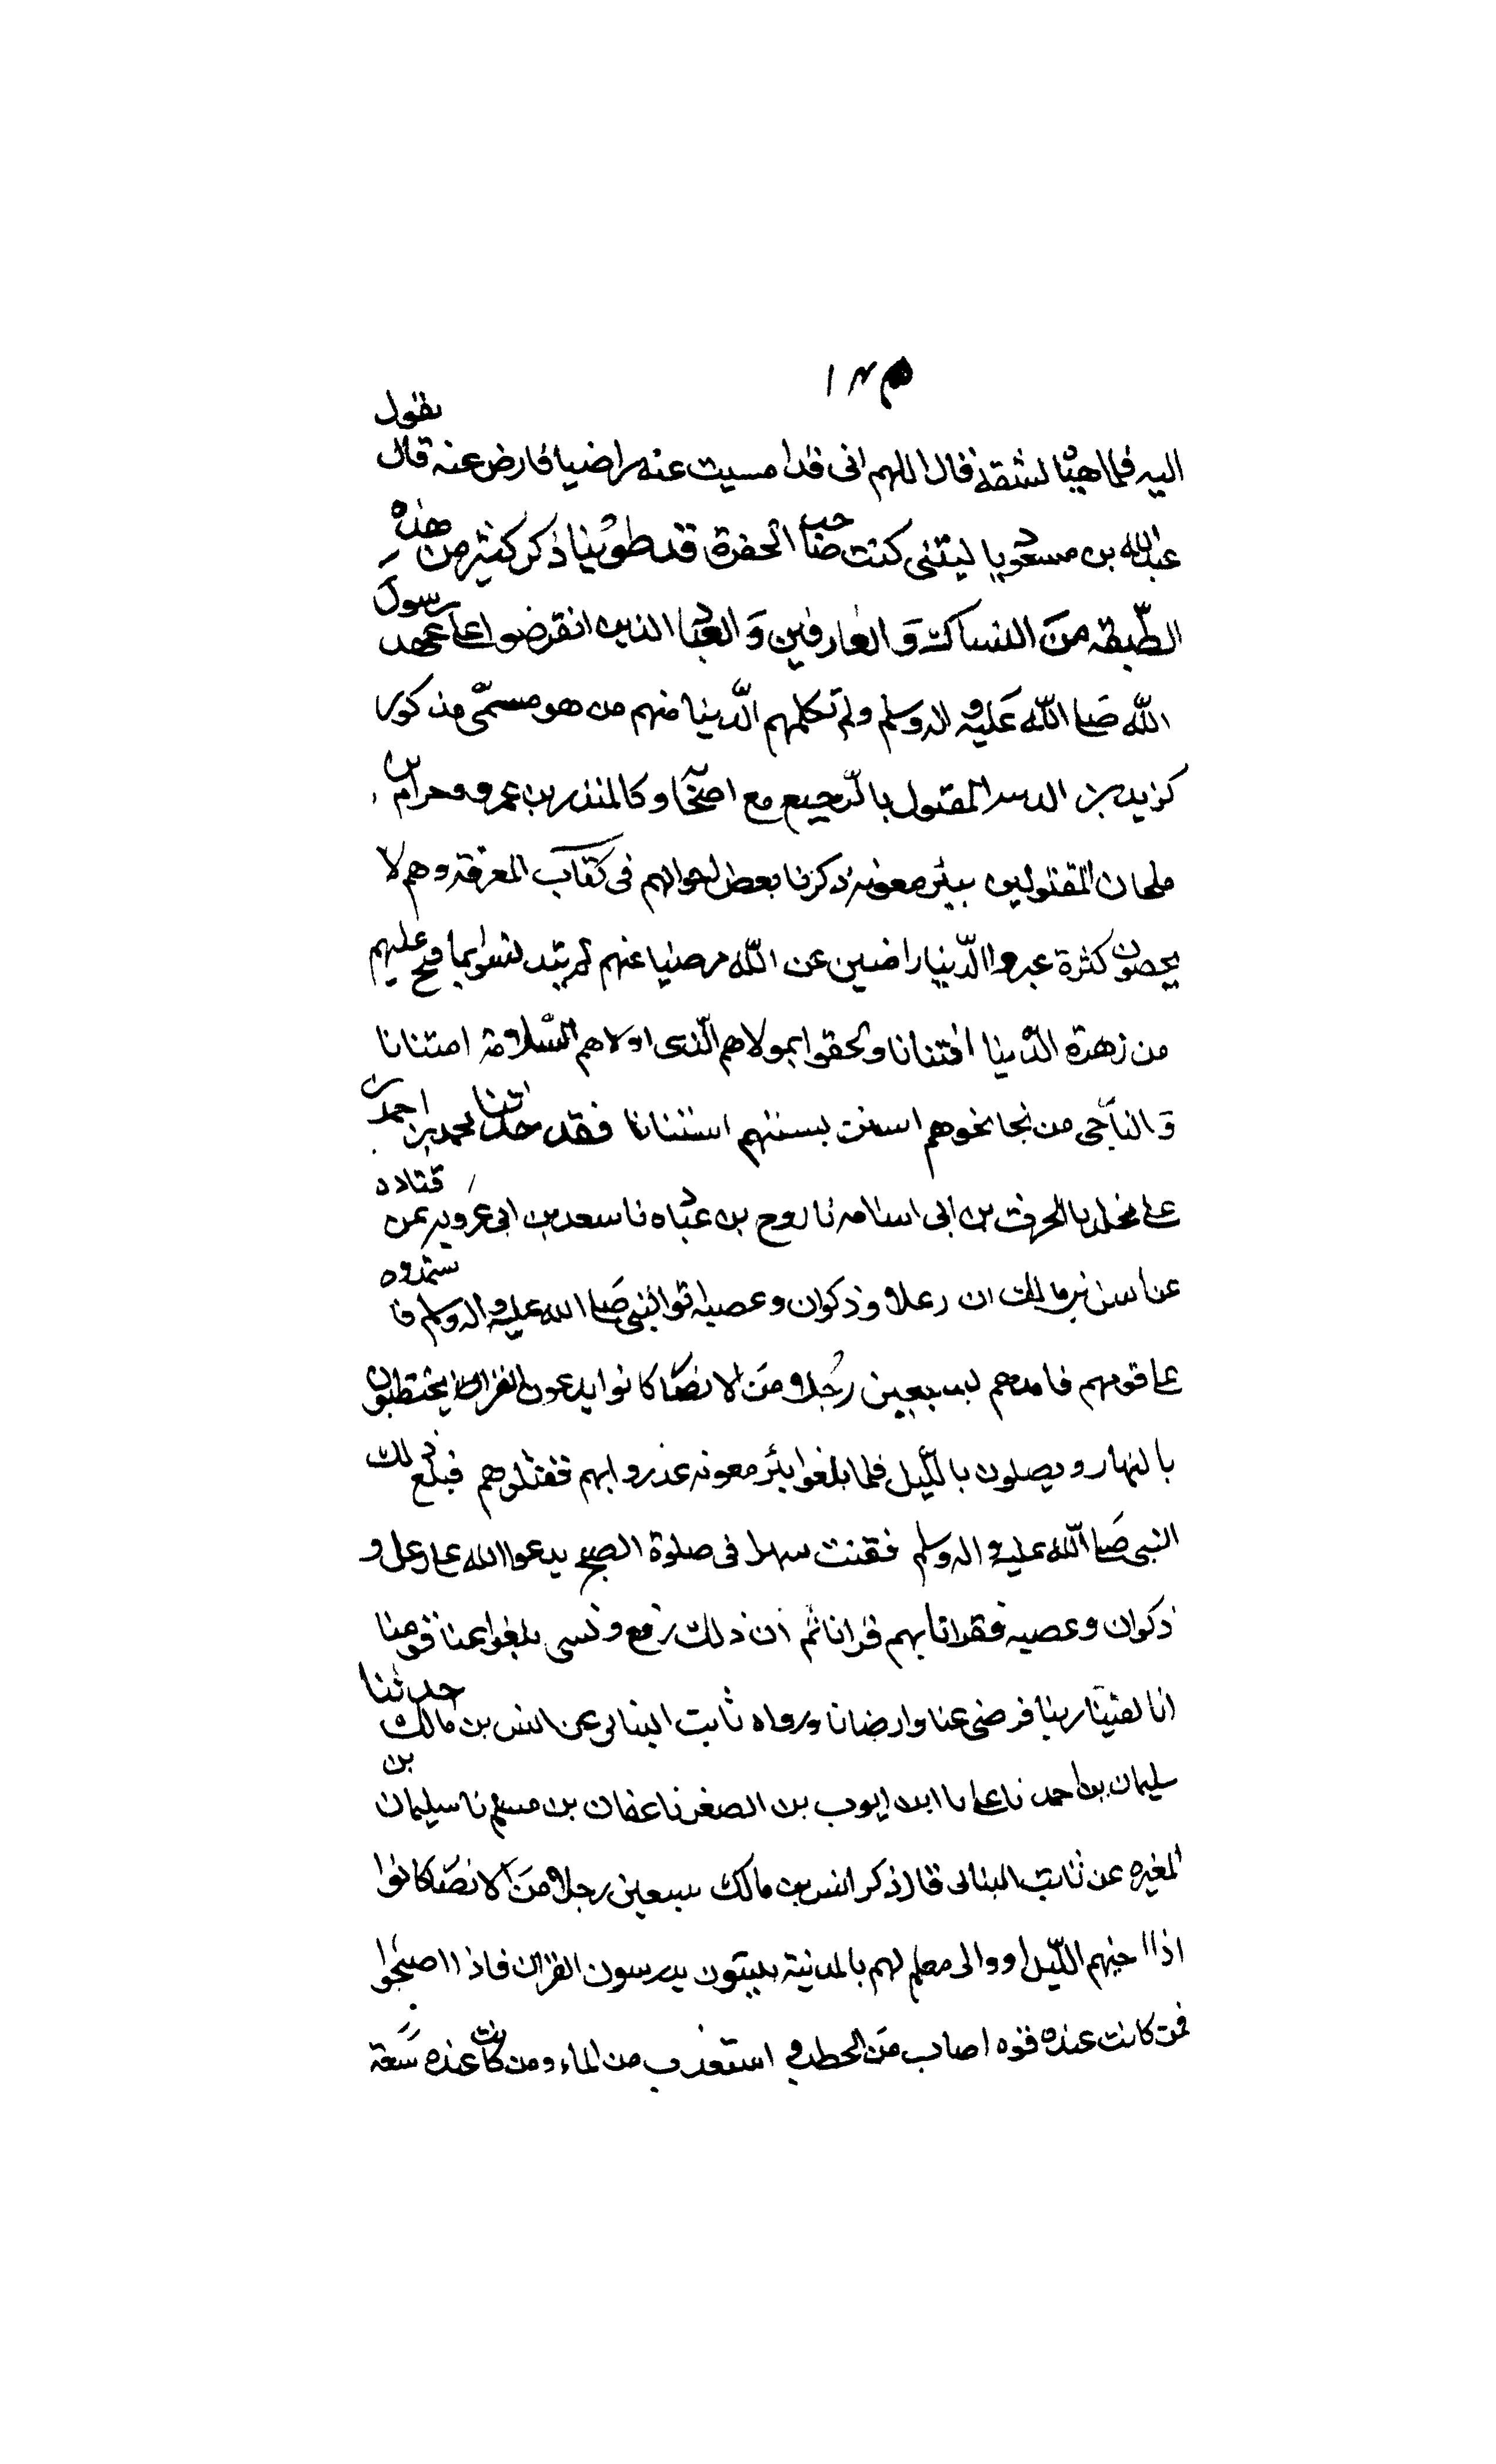 ١٢٥
اليه فلما هيا لشقه فقال اللهم انى قد امسيت عنه راضيا فارض عنه قال يقول
عبدالله بن مسعود يا ليتنى كنت صاحب الحفرة قد طوينا ذكر كثير من هذه
الطّبقه منَ النساك وَ العارفين وَ العباد الذين انقرضوا على عهد رسول
الله صَلى الله عَليه واله وسلم ولم تكلمهم الدّنيا منهم من هو مسمّى مذكور
كزيد بن الدسه المقتول بالرّجيع مع اصحابه وكالمنذر بن عمرو وحرام بن
ملحان المقتولين ببئر معونه ذكرنا بعض احوالهم فى كتاب المعرفة وهم لا
يحصون كثرة عبروا الدّنيا راضين عن الله مرضيا عنهم لم يتدنسوا بما فتح عليهم
من زهرة الدّنيا افتنانا ولحقوا بمولاهم الّذى اولاهم السّلامة امتنانا
وَ الناجى من نجا نحوهم استن بسنتهم استنانا فقد حدثنا محمد بن احمد بن
على مخلد نا الحرث بن ابى اسامه نا روح بن عباده نا سعد بن ابى عرَوبه عن قتاده
عن انس بن مالك ان رعلا وذكوان وعصيه اتوا النبى صَلى الله عليه واله وسلم فاستمدوه
على قومهم فامدهم بسبعين رجُلا منَ الانصار كانوا يدعون القراء يحتطبون
بالنهار ويصلون بالليل فلما بلغوا بئر معونه غدروا بهم فقتلوهم فبلغ ذلك
النبى صَلى الله عليه واله وسلم فقنت شهرا فى صلوة الصبح يدعوا الله على رعل و
ذكوان وعصيه فقرانا بهم قرانا ثم ان ذلك رفع ونسى بلغوا عنا قومنا
انا لقينا ربنا فرضى عنا وارضانا ورواه ثابت البنانى عن انس بن مالك حدثنا
سليمان بن احمد نا على ابن ايوب بن الصقر نا عفان بن مسلم نا سليمان بن
المغيره عن ثابت البنانى قال ذكر انس بن مالك سبعين رجلا منَ الانصار كانوا
اذا جنهم الليل اووا الى معلم لهم بالمدينة يبيتون يدرسون القران فاذا اصبحوا
فمن كانت عنده قوه اصاب منَ الحطب و استعذب من الماء ومن كانت عنده سَعَة